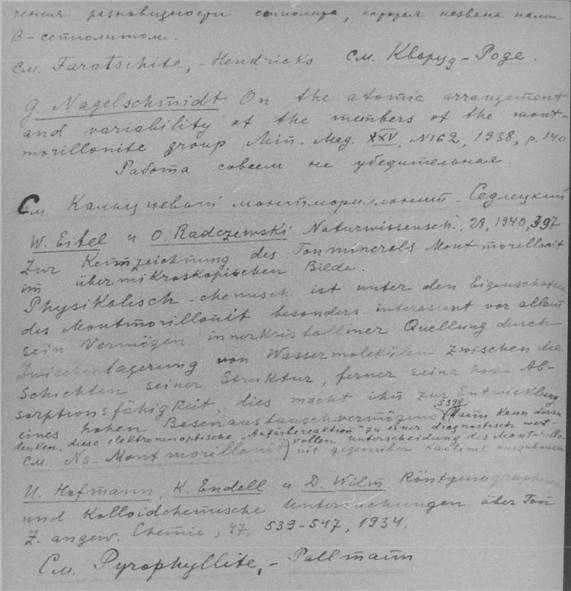 чения разновидности сепиолита, которая названа нами
В-сепиолитом.
См. Faratschite, - Hendricks См. Кворуд-Роде.
G. Nagelschmidt On the atomic arrangement
and variability of the members of the mont-
morillonite group Min. Mag. XXV, N162, 1938, p. 140
Работа совсем не убедительная
См Кальциевый монтмориллонит - Седлецкий
W. Eitel и O. Radczewski Naturwissensch., 28, 1940, 397
Zur Kennzeichnung des Tonminerals Montmorillonit
im übermikroskopischen Bilde.
Physikalisch-chemisch ist unter den Eigenschaften
des Montmorillonit besonders interessant vor allem
sein Vermögen innerkristalliner Quellung durch
Zwischenlagerung von Wassermolekülen zwischen die
Schichten seiner Struktur, ferner seine hohe Ab-
sorptionsfähigkeit, dies macht ihn zur Entwicklung
eines hohen Basenaustauschvermögens
denken, diese elektronenoptische "Anfärbereaktion" zu einer diagnostisch wert-
vollen unterscheidung des Montmorillo-
См. Na-Montmorillonit nit gegenüber Kaolinit auszubauen
U. Hofmann, K. Endell и D. Wilm Röntgenographische
und Kolloidchemische Untersuchungen über Ton
Z. angew. Chemie, 47, 539-547, 1934.
См. Pyrophyllite, - Pallmann